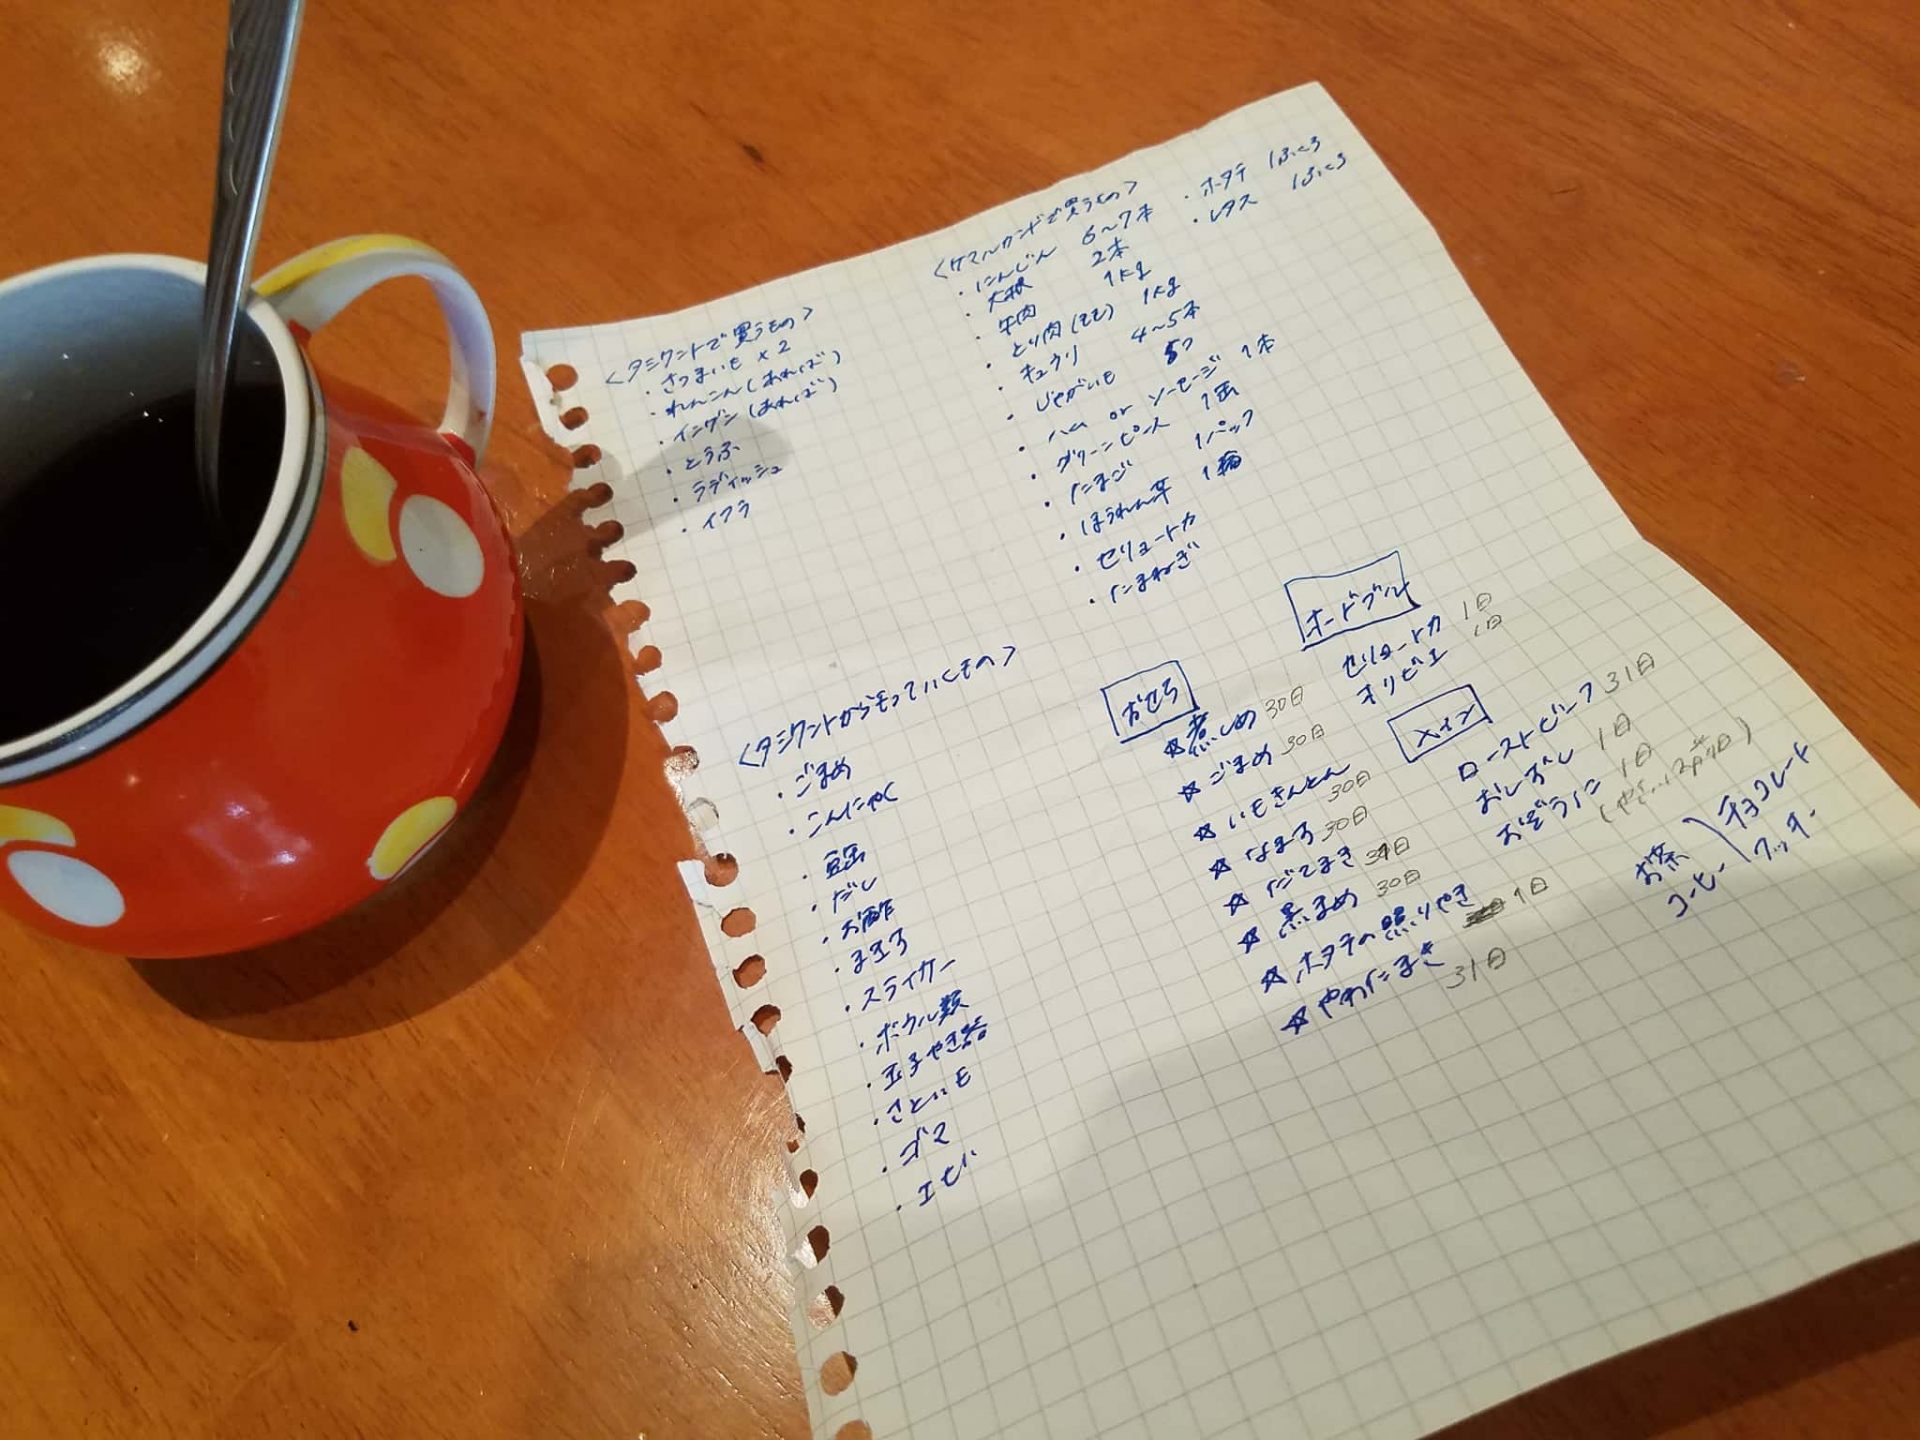 <タシケントで買うもの>
・さつまいも ×2
・れんこん(あれば)
・インゲン(あれば)
・とうふ
・ラディッシュ
・イクラ
<サマルカンドで買うもの>
・にんじん 6〜7本
・大根 2本
・牛肉 1kg
・とり肉(もも) 1kg
・キュウリ 4〜5本
・じゃがいも 5つ
・ハム or ソーセージ 1本
・グリーンピース 1缶
・たまご 1パック
・ほうれん草 1輪
・セリョートカ
・たまねぎ
・ホタテ 1ふくろ
・レタス 1ふくろ
<タシケントからもっていくもの>
・ごまめ
・こんにゃく
・豆缶
・だし
・お酢
・まな
・スライサー
・ボウル数
・玉子やき器
・さといも
・ゴマ
・エビ
おせち
☆煮しめ 30日
☆ごまめ 30日
☆いもきんとん 30日
☆なます 30日
☆だてまき 31日
☆黒まめ 30日
☆ホタテの照りやき 1日
☆やわたまき 31日
オードブル
セリョートカ 1日
オリビエ 1日
メイン
ローストビーフ 31日
おしずし 1日
おぞうに 1日
お茶
コーヒー
チョコレート
クッキー